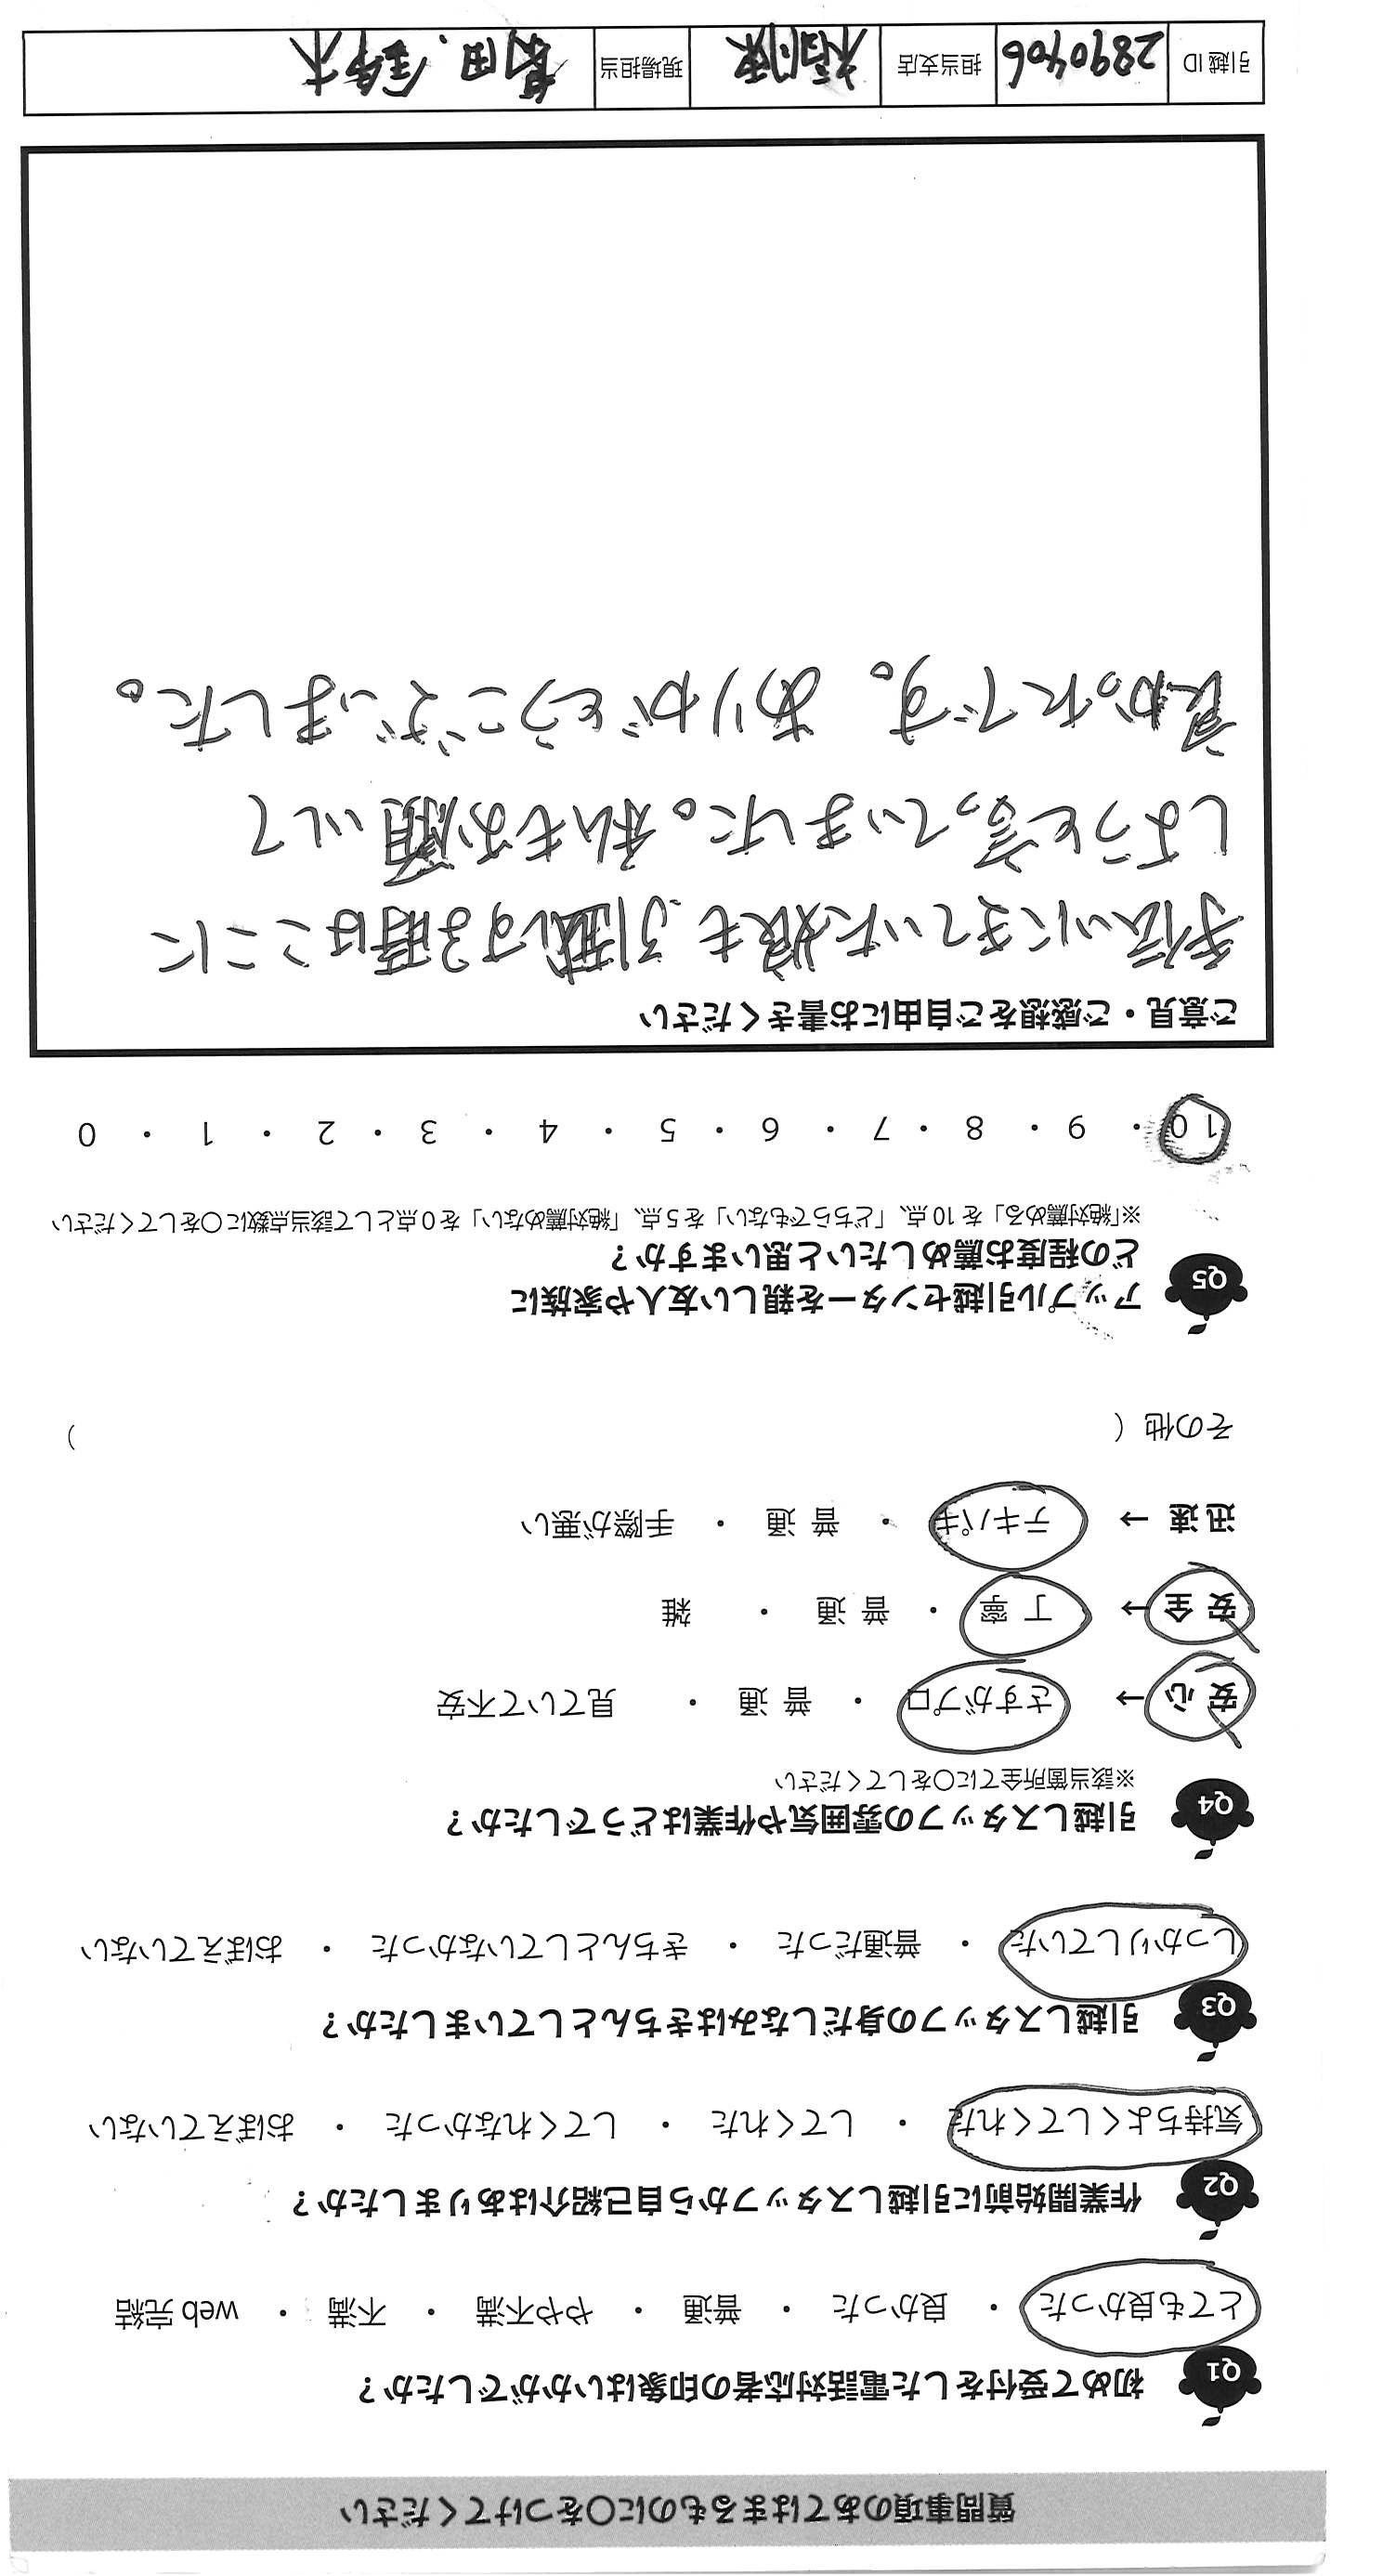 質問事項のあてはまるものに○をつけてください
Q1 初めて受付をした電話対応者の印象はいかがでしたか？
とても良かった ・ 良かった ・ 普通 ・ やや不満 ・ 不満 ・ web 完結
Q2 作業開始前に引越しスタッフから自己紹介はありましたか？
気持ちよくしてくれた ・ してくれた ・ してくれなかった ・ おぼえていない
Q3 引越しスタッフの身だしなみはきちんとしていましたか？
しっかりしていた ・ 普通だった ・ きちんとしていなかった ・ おぼえていない
Q4 引越しスタッフの雰囲気や作業はどうでしたか？
※該当箇所全てに○をしてください
安心 → さすがプロ ・ 普通 ・ 見ていて不安
安全 → 丁寧 ・ 普通 ・ 雑
迅速 → テキパキ ・ 普通 ・ 手際が悪い
その他（ ）
Q5 アップル引越センターを親しい友人や家族に
どの程度お薦めしたいと思いますか？
※「絶対薦める」を 10 点、「どちらでもない」を 5 点、「絶対薦めない」を 0 点として該当点数に○をしてください
10 ・ 9 ・ 8 ・ 7 ・ 6 ・ 5 ・ 4 ・ 3 ・ 2 ・ 1 ・ 0
ご意見・ご感想をご自由にお書きください
手伝いにきていた娘も引越しする時はここに
しようと言っていました。私もお願いして
良かったです。ありがとうございました。
引越 ID 2890406 担当支店 現場担当 鈴木